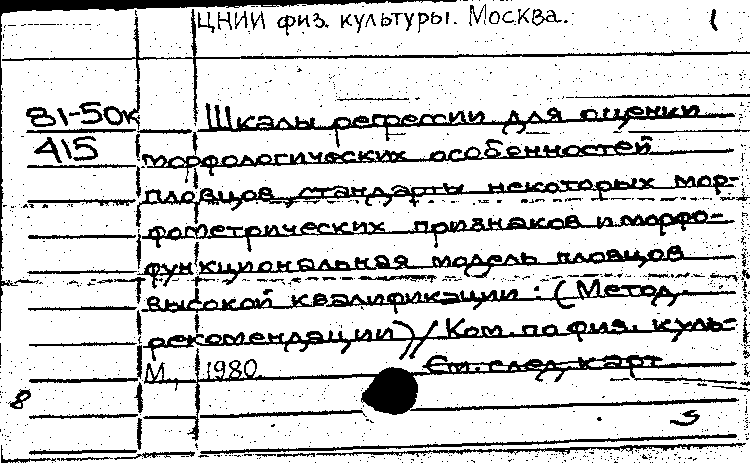 ЦНИИ физ. культуры. Москва. 1
81-50к Шкалы регрессии для оценки
415 морфологических особенностей
пловцов, стандарты некоторых мор-
фометрических признаков и морфо-
функциональная модель пловцов
высокой квалификации: (Метод.
рекомендации) / Ком. по физ. куль-
М., 1980. См. след. карт
8